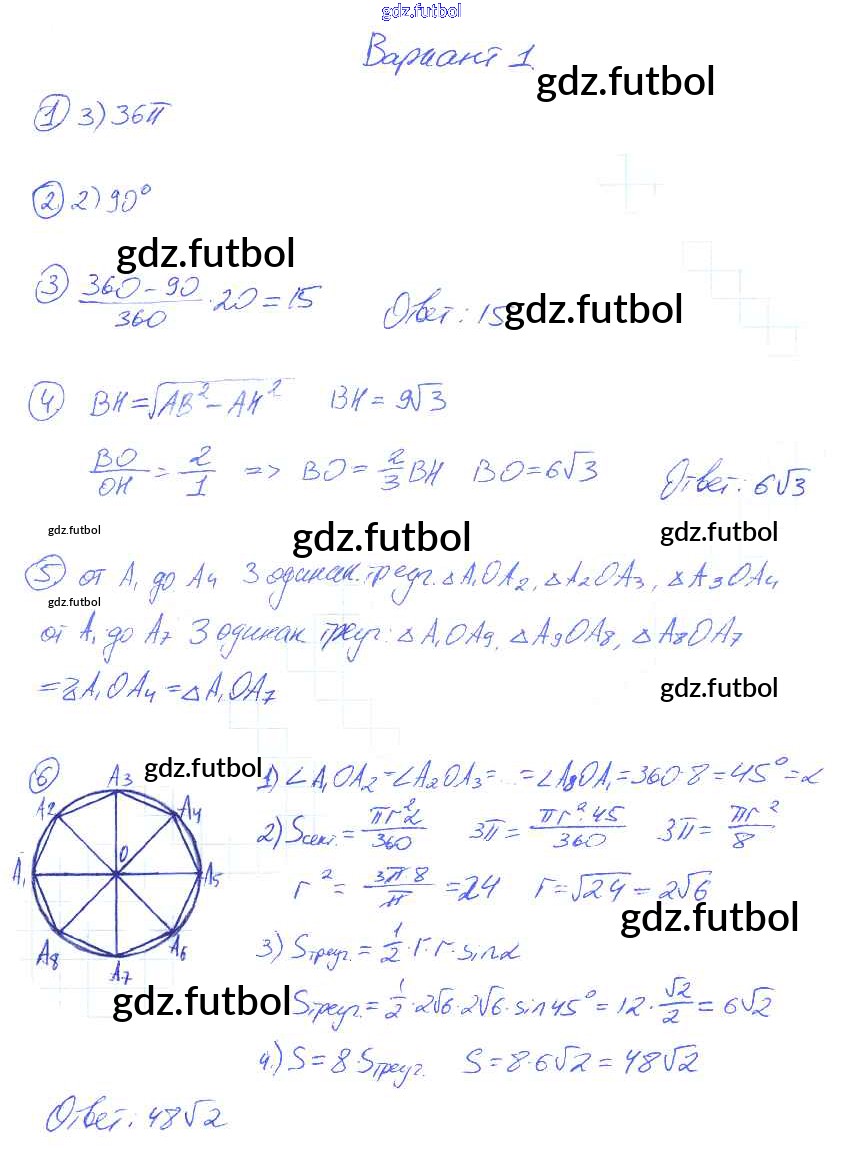 gdz.futbol
Вариант 1.
gdz.futbol
① 3) 36π
② 2) 90°
gdz.futbol
③ (360 - 90)/360 · 20 = 15 Ответ: 15
gdz.futbol
④ BH = √(AB² - AH²) BH = 9√3
BO/OH = 2/1 => BO = 2/3 BH BO = 6√3 Ответ: 6√3
gdz.futbol gdz.futbol gdz.futbol
⑤ от A₁ до A₄ 3 одинак. треуг. △A₁OA₂, △A₂OA₃, △A₃OA₄
gdz.futbol
от A₁ до A₇ 3 одинак треуг: △A₁OA₉, △A₉OA₈, △A₈OA₇
= △A₁OA₄ = △A₁OA₇
gdz.futbol
gdz.futbol
⑥ 1) ∠A₁OA₂ = ∠A₂OA₃ = ... = ∠A₈OA₁ = 360 · 8 = 45° = α
A₁ A₂ A₃ A₄ A₅ A₆ A₇ A₈ O
2) Sсект. = πr²α/360 3π = πr²·45/360 3π = πr²/8
r² = 3π8/π = 24 r = √24 = 2√6
gdz.futbol
3) Sтреуг. = 1/2 · r · r · sinα
gdz.futbol
Sтреуг. = 1/2 · 2√6 · 2√6 · sin45° = 12 · √2/2 = 6√2
4.) S = 8 · Sтреуг. S = 8 · 6√2 = 48√2
Ответ: 48√2